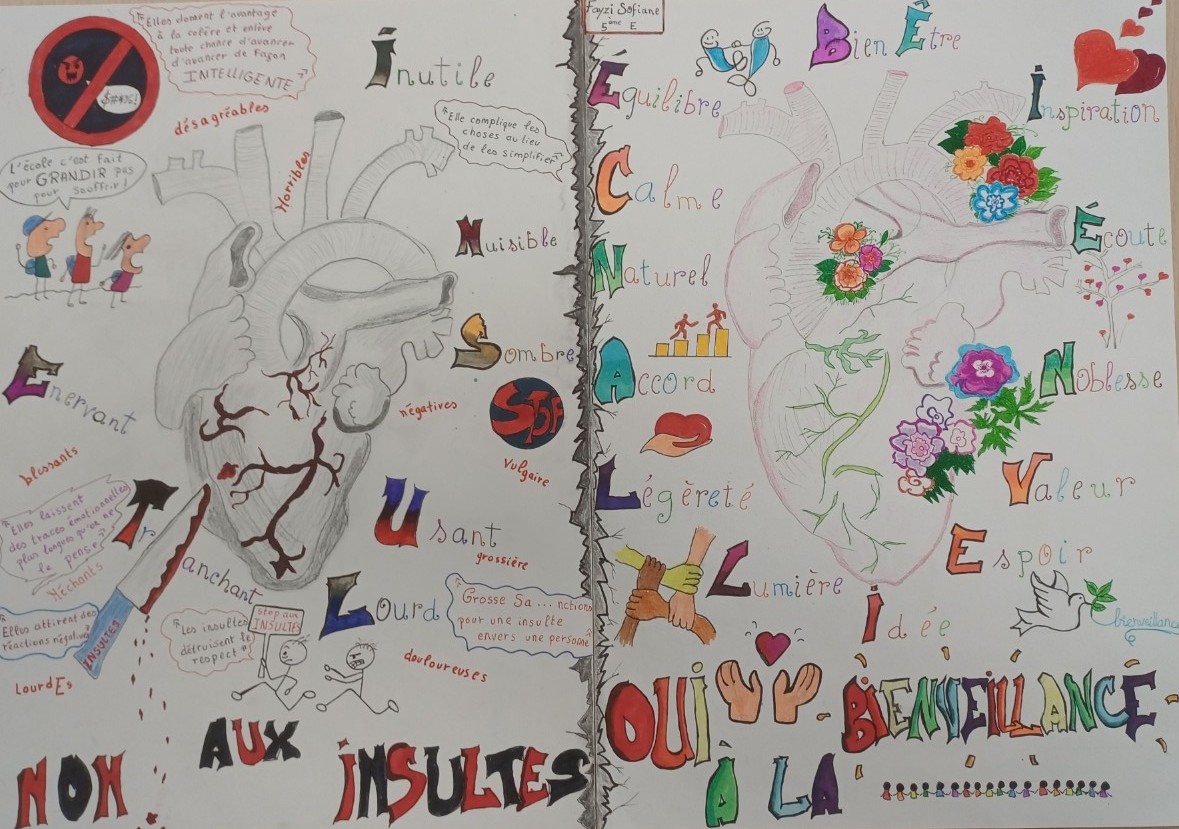 "Elles donnent l'avantage
à la colère et enlève
toute chance d'avancer
d'avancer de façon
INTELLIGENTE"
$#*%!
désagréables
İnutile
"Elle complique les
choses au lieu
de les simplifier"
L'école c'est fait
pour GRANDIR pas
pour souffrir!
Horribles
Nuisible
Sombre
Enervant
négatives
STOP
vulgaire
blessants
"Elles laissent
des traces émotionnelles
plus longues qu'on ne
le pense"
Tranchant
Usant
grossière
Méchants
"Elles attirent des
réactions négatives"
INSULTES
"Les insultes
détruisent le
respect"
Stop aux
INSULTES
Lourd
"Grosse Sa... nctions
pour une insulte
envers une personne"
douloureuses
LourdEs
NON AUX İNSULTES
Fayzi Sofiane
5ème E
Bien Être
Equilibre
İnspiration
Calme
Écoute
Naturel
Accord
Noblesse
Légèreté
Valeur
Espoir
Lumière
İdée
bienveillance
OUİ À LA BİENVEİLLANCE